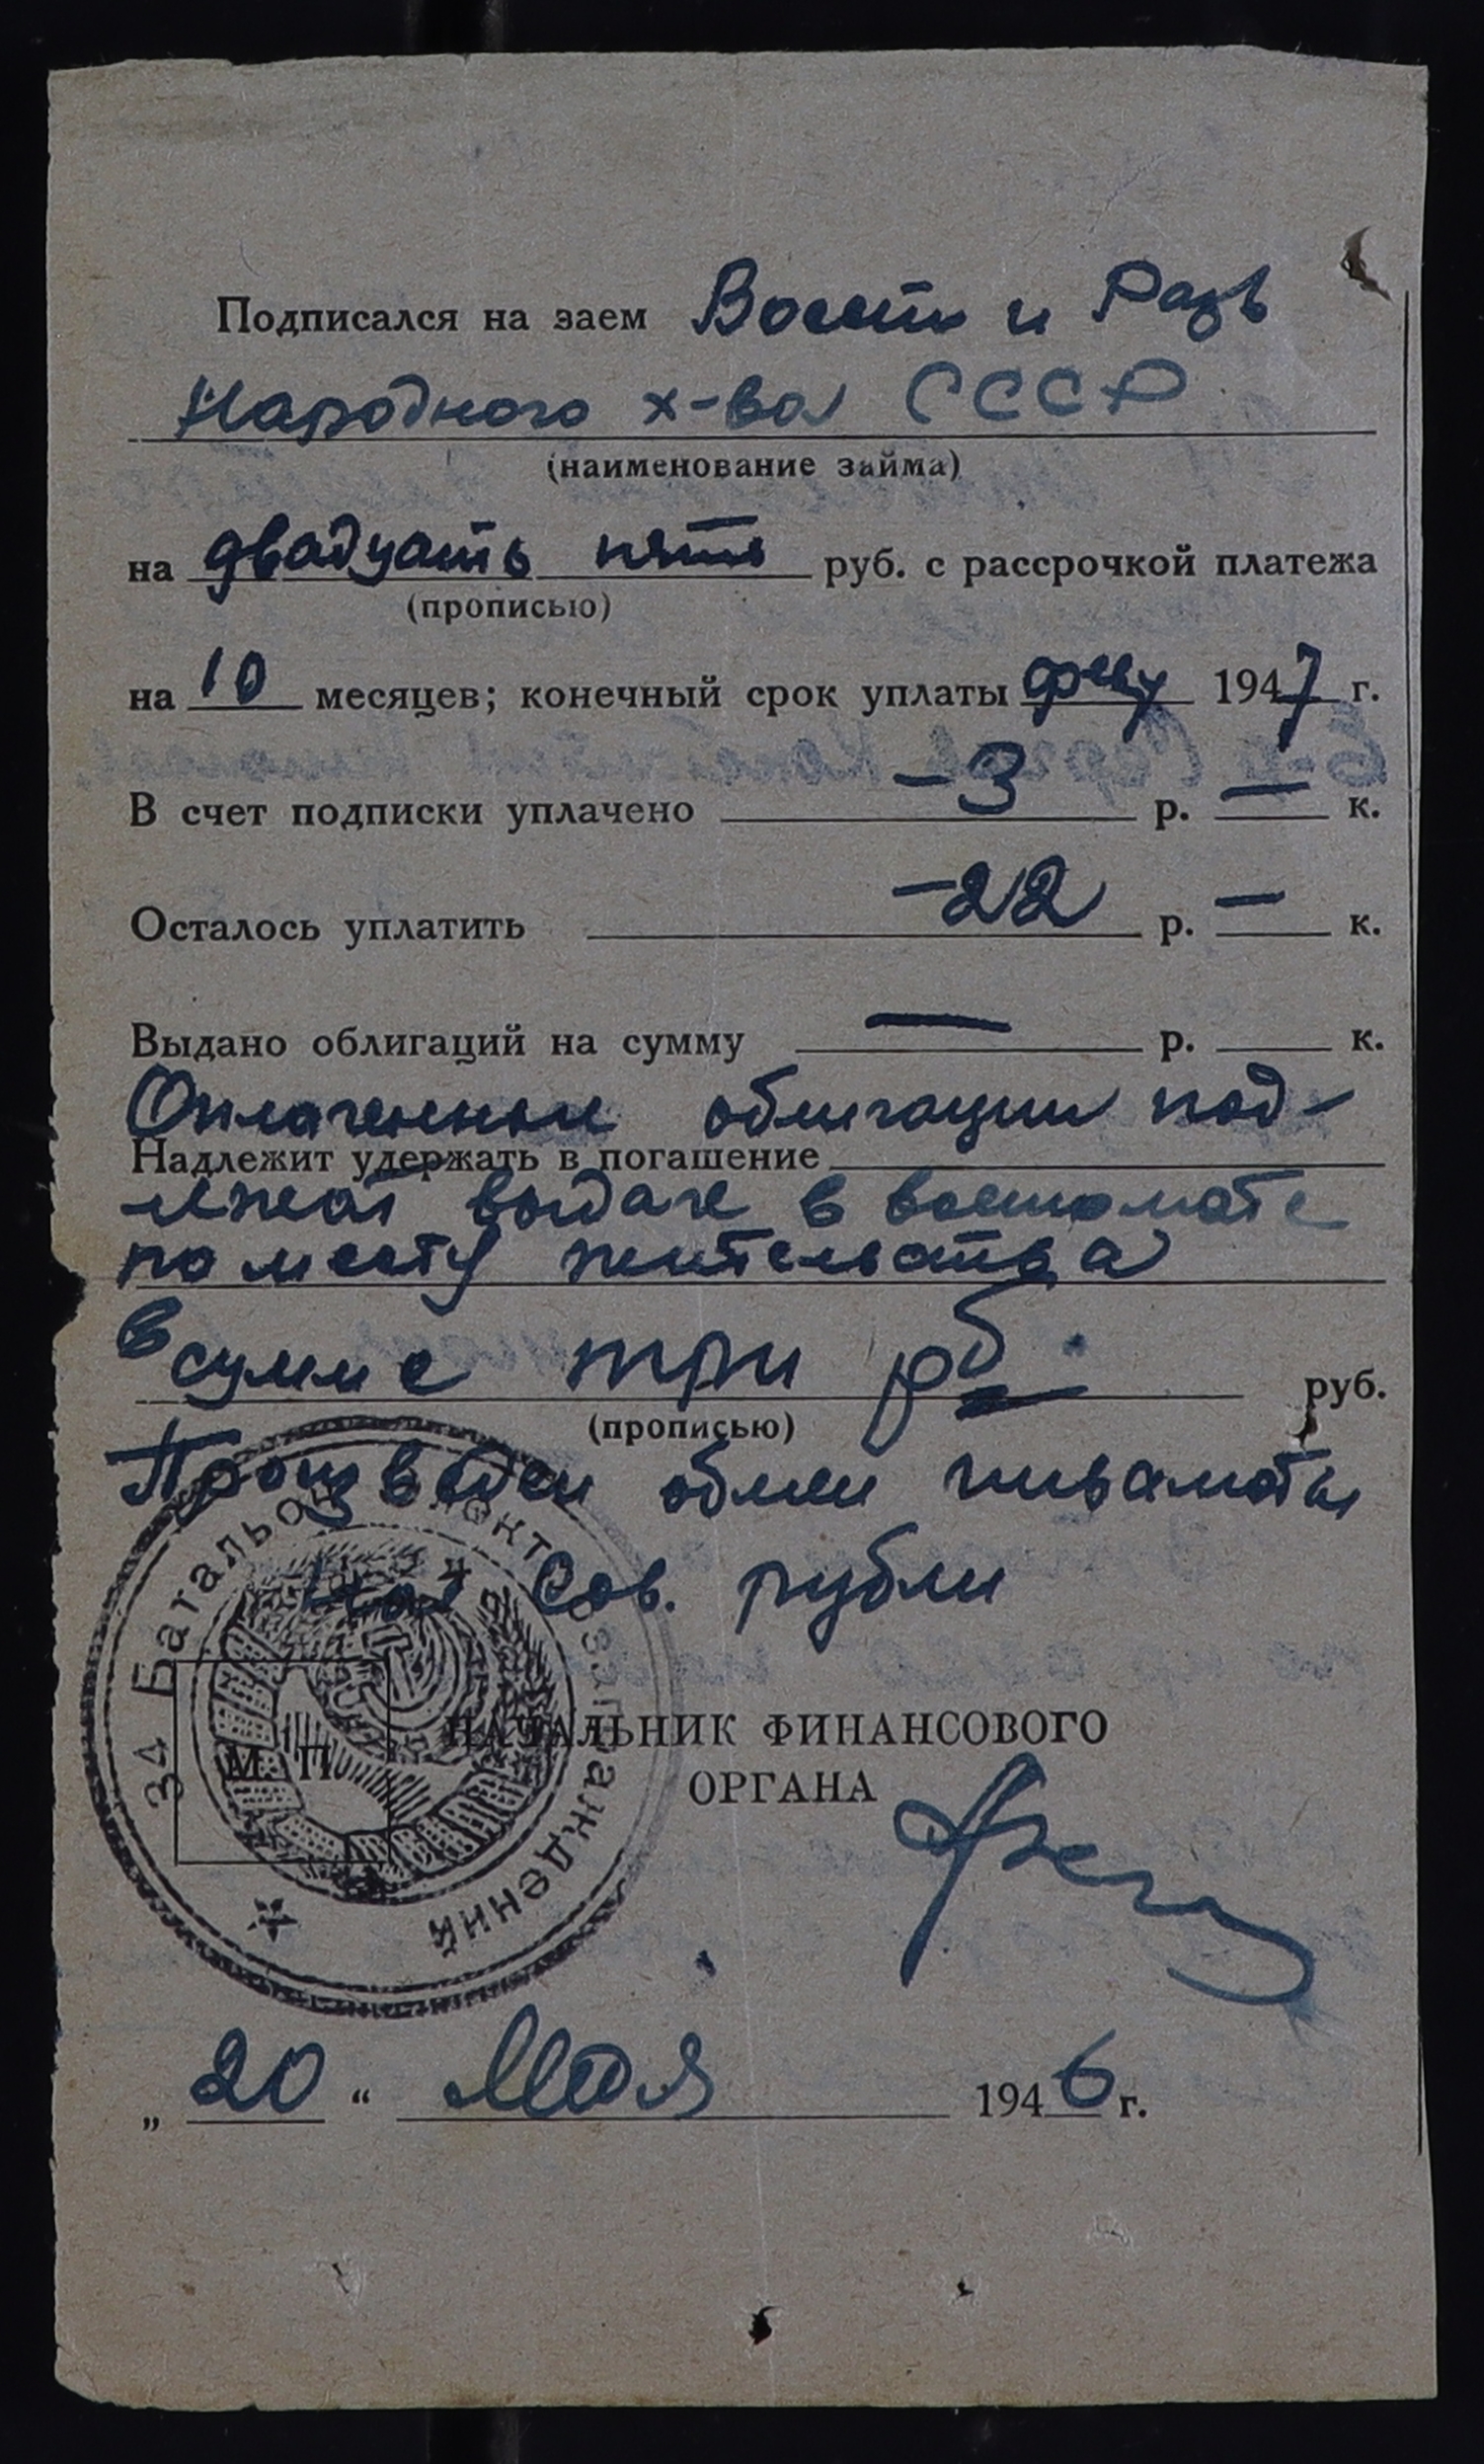 Подписался на заем Восст и Разв
Народного х-ва СССР
(наименование займа)
на двадцать пять руб. с рассрочкой платежа
(прописью)
на 10 месяцев; конечный срок уплаты 1947 г.
В счет подписки уплачено -3 р. — к.
Осталось уплатить -22 р. — к.
Выдано облигаций на сумму — р. к.
Оплаченные облигации под-
Надлежит удержать в погашение
лжат выдаче в военкомате
по месту жительства
в сумме три рб руб.
(прописью)
Произведен обмен
на Сов. рубли
34 Батальон Электрозаграждений
М. П.
НАЧАЛЬНИК ФИНАНСОВОГО
ОРГАНА
„ 20 “ Мая 1946 г.